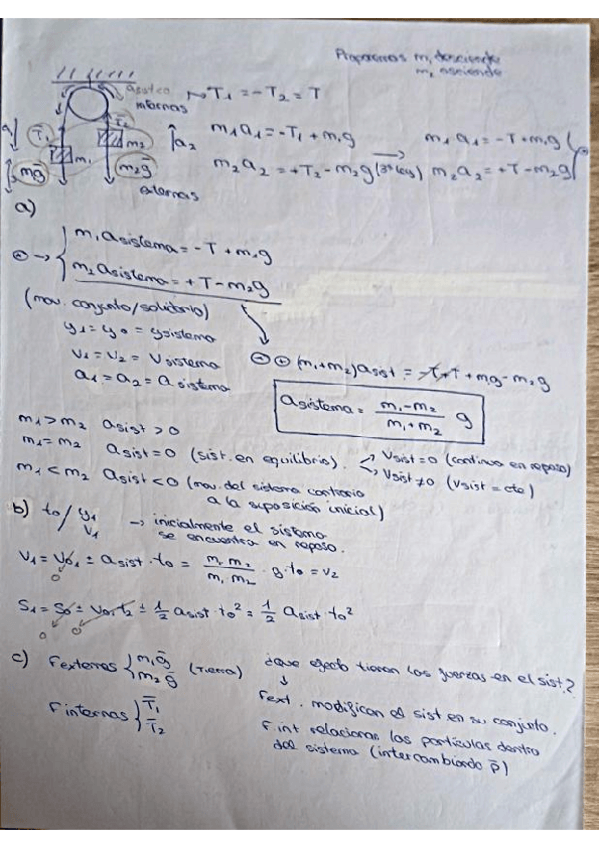 Proponemos m₁ desciende
m₂ asciende
T₁ = -T₂ = T
internas
T₁
T₂
m₁
m₂
a₂
m₁g
m₂g
externas
m₁a₁ = -T₁ + m₁g
m₂a₂ = +T₂ - m₂g (3ª ley)
m₁a₁ = -T + m₁g
m₂a₂ = +T - m₂g
a)
m₁ asistema = -T + m₁g
m₂ asistema = +T - m₂g
(mov. conjunto/solidario)
y₁ = y₂ = ysistema
v₁ = v₂ = vsistema
a₁ = a₂ = asistema
(m₁+m₂)asist = -T + T + m₁g - m₂g
asistema = (m₁-m₂)/(m₁+m₂) g
m₁ > m₂ asist > 0
m₁ = m₂ asist = 0 (sist. en equilibrio). → Vsist = 0 (continua en reposo)
→ Vsist ≠ 0 (Vsist = cte)
m₁ < m₂ asist < 0 (mov. del sistema contrario
a la suposición inicial)
b) t₀ / y₁
v₁
→ inicialmente el sistema
se encuentra en reposo.
V₁ = V₀₁ ± asist · t₀ = (m₁ m₂)/(m₁ m₂) · g · t₀ = v₂
0
S₁ = S₀ ± V₀₁t₂ ± 1/2 asist · t₀² = 1/2 asist · t₀²
0 0
c) Fexternas { m₁g̅
m₂g̅ (Tierra)
Finternas { T̅₁
T̅₂
¿que efecto tienen las fuerzas en el sist?
Fext. modifican el sist en su conjunto.
Fint relacionan las partículas dentro
del sistema (intercambiando p̅)